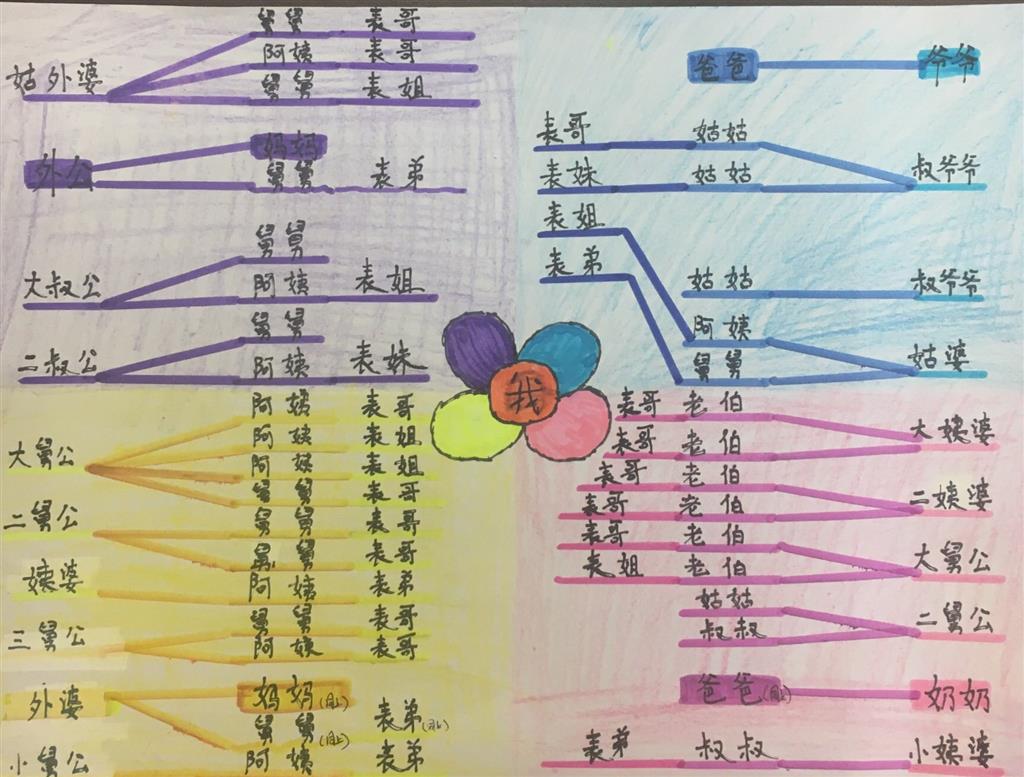 舅舅 表哥
姑外婆 阿姨 表哥
舅舅 表姐
外公 妈妈
舅舅 表弟
大叔公 舅舅
阿姨 表姐
二叔公 舅舅
阿姨 表妹
爸爸 爷爷
表哥 姑姑 叔爷爷
表妹 姑姑
表姐
表弟 姑姑 叔爷爷
阿姨 姑婆
舅舅
我
大舅公 阿姨 表哥
阿姨 表姐
阿姨 表姐
舅舅 表哥
二舅公 舅舅 表哥
舅舅 表哥
姨婆 阿姨 表弟
三舅公 舅舅 表哥
阿姨 表哥
外婆 妈妈(同上)
舅舅(同上) 表弟(同上)
小舅公 阿姨 表弟
表哥 老伯 大姨婆
表哥 老伯
表哥 老伯 二姨婆
表哥 老伯
表哥 老伯 大舅公
表姐 老伯
姑姑 二舅公
叔叔
爸爸(同上) 奶奶
表弟 叔叔 小姨婆